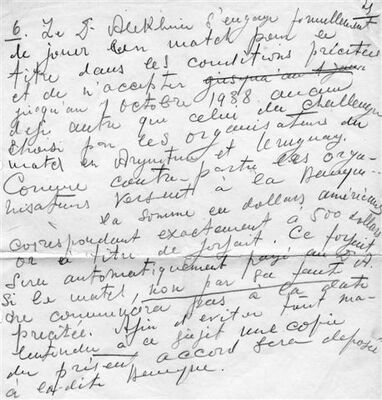 4
6. Le Dr Alekhine s'engage formellement
de jouer son match pour le
titre dans les conditions précitées
et de n'accepter jusqu'au
jusqu'au 1 octobre 1938 aucun
defi autre que celui du challenger
choisi par les organisateurs du
match en Argentine et Uruguay.
Comme contre-partie les orga-
nisateurs versent à la Banque
la somme en dollars americains
correspondant exactement à 500 dollars
or à titre de forfait. Ce forfait
sera automatiquement payé au Dr A.
Si le match, non par sa faute
ne commencera pas à la date
precitée. Afin d'eviter tout ma-
lentendu à ce sujet une copie
du present accord sera deposée
à la dite Banque.